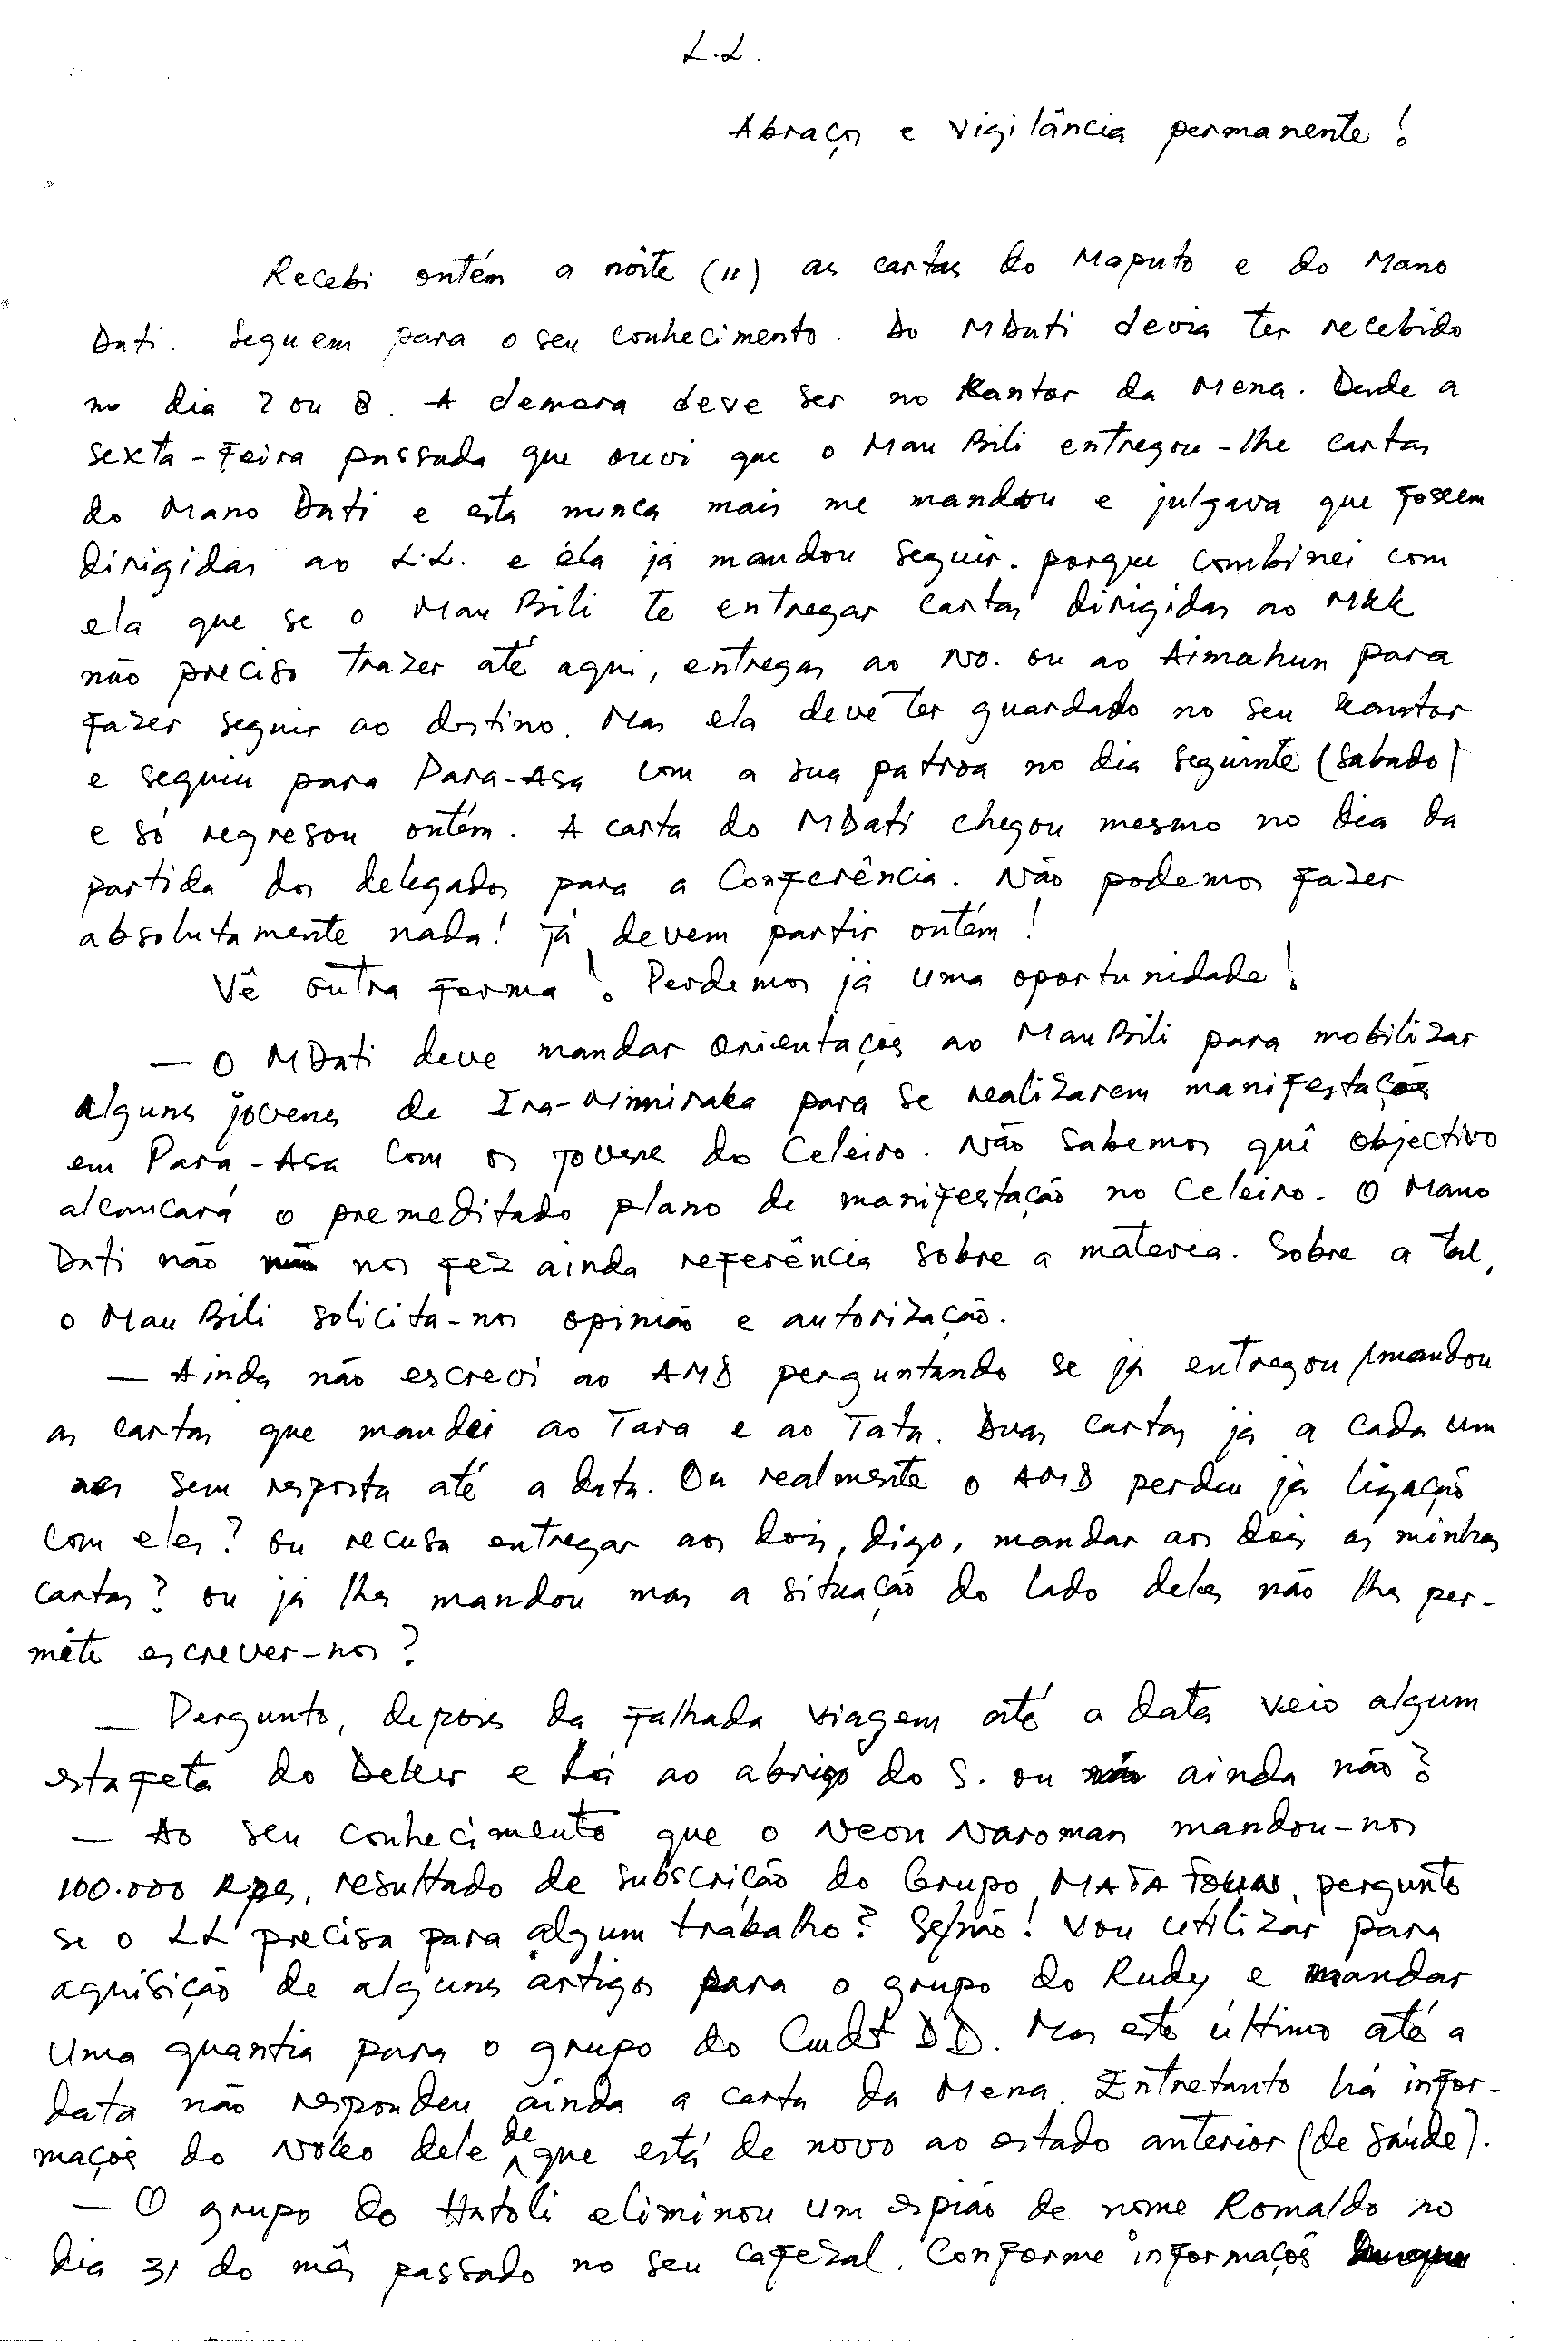 L.L.
Abraços e vigilância permanente!
Recebi ontém a noite (11) as cartas do Maputo e do Mano
Dati. Seguem para o seu conhecimento. Do MDati devia ter recebido
no dia 7 ou 8. A demora deve ser no Kantor da Mena. Desde a
sexta-feira passada que ouvi que o Mau Bili entregou-lhe cartas
do Mano Dati e esta nunca mais me mandou e julgava que fossem
dirigidas ao L.L. e éla já mandou seguir. porque combinei com
ela que se o Mau Bili te entregar cartas dirigidas ao MKK
não preciso trazer até aqui, entregas ao No. ou ao Aimahun para
fazer seguir ao destino. Mas ela deve ter guardado no seu Kantor
e seguiu para Para-Asa com a sua patroa no dia seguinte (sabado)
e só regresou ontém. A carta do MDati chegou mesmo no dia da
partida dos delegados para a Conferência. Não podemos fazer
absolutamente nada! Já devem partir ontém!
Vê outra forma! Perdemos já uma oportunidade!
— O MDati deve mandar orientaçōes ao Mau Bili para mobilizar
alguns jovens de Ira- para se realizarem manifestações
em Para-Asa com os jovens do Celeiro. Não sabemos quê objectivo
alcançará o premeditado plano de manifestação no Celeiro. O Mano
Dati não nos fez ainda referência sobre a materia. Sobre a tal,
o Mau Bili solicita-nos opinião e autorização.
— Ainda não escrevi ao AMD perguntando se já entregou/mandou
as cartas que mandei ao Tara e ao Tata. Duas cartas já a cada um
mas sem resposta até a data. Ou realmente o AMD perdeu já ligação
com eles? ou recusa entregar aos dois, digo, mandar aos dois as minhas
cartas? ou já lhes mandou mas a situação do lado deles não lhes per-
mite escrever-nos?
— Pergunto, depois da falhada viagem até a data veio algum
estafeta do Deker e Lá ao abrigo do S. ou ainda não?
— Ao seu conhecimento que o Neon Naroman mandou-nos
100.000 Rps, resultado de subscrição do Grupo MATA , pergunto
se o LL precisa para algum trabalho? Se/não! Vou utilizar para
aquisição de alguns artigos para o grupo do Rudy e mandar
uma quantia para o grupo do Cmdt DD. Mas esté último até a
data não respondeu ainda a carta da Mena. Entretanto há infor-
maçōes do Nokeo dele de que está de novo ao estado anterior (de saúde).
— O grupo do Hatoli eliminou um espião de nome Romaldo no
dia 31 do mês passado no seu cafezal. Conforme informaçōes